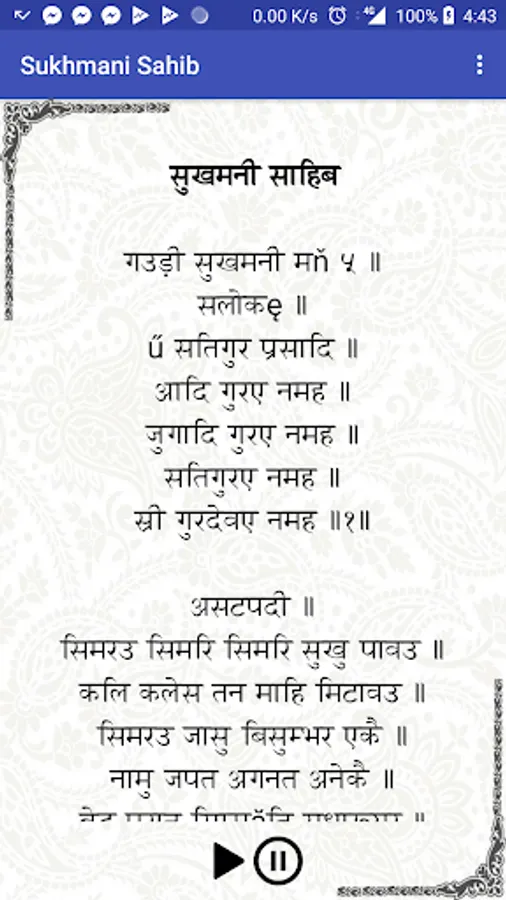 0.00 K/s 4G 100% 4:43
Sukhmani Sahib
सुखमनी साहिब
गउड़ी सुखमनी मň ५ ॥
सलोकę ॥
ű सतिगुर प्रसादि ॥
आदि गुरए नमह ॥
जुगादि गुरए नमह ॥
सतिगुरए नमह ॥
स्री गुरदेवए नमह ॥१॥
असटपदी ॥
सिमरउ सिमरि सिमरि सुखु पावउ ॥
कलि कलेस तन माहि मिटावउ ॥
सिमरउ जासु बिसुम्भर एकै ॥
नामु जपत अगनत अनेकै ॥